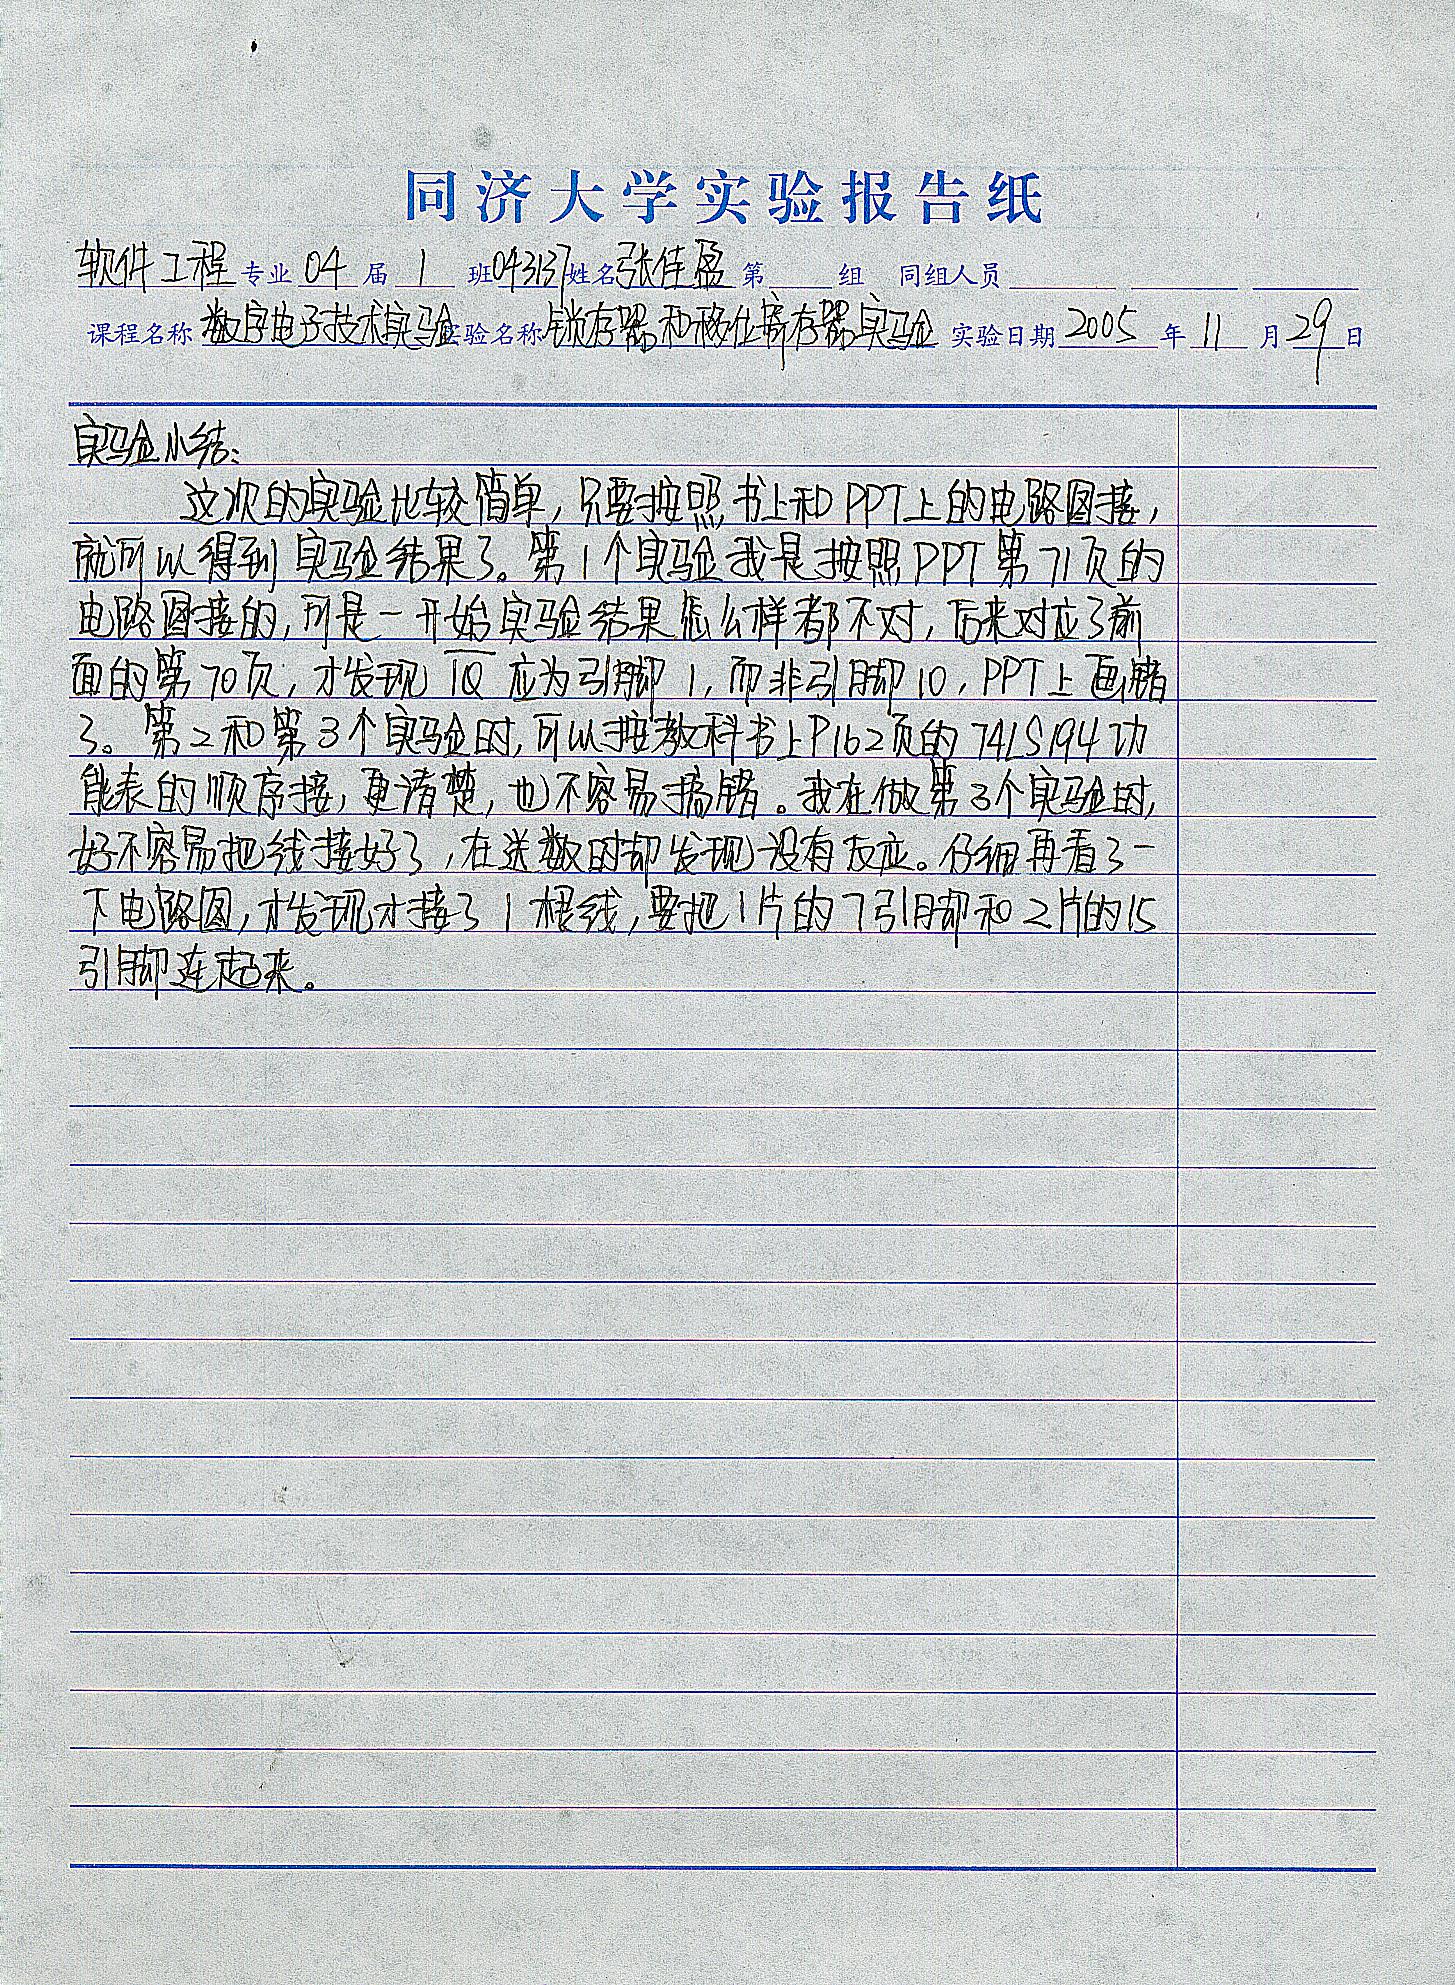 同济大学实验报告纸
软件工程专业 04 届 1 班 043137 姓名 张佳盈 第 组 同组人员
课程名称 数字电子技术实验 实验名称 锁存器和移位寄存器实验 实验日期 2005 年 11 月 29 日
实验小结:
这次的实验比较简单,只要按照书上和PPT上的电路图接,
就可以得到实验结果了。第1个实验我是按照PPT第71页的
电路图接的,可是一开始实验结果怎么样都不对,后来对应了前
面的第70页,才发现 1Q̅ 应为引脚1,而非引脚10,PPT上画错
了。第2和第3个实验时,可以按教科书上P162页的74LS194功
能表的顺序接,更清楚,也不容易搞错。我在做第3个实验时,
好不容易把线接好了,在送数时却发现没有反应。仔细再看了一
下电路图,才发现才接了1根线,要把1片的7引脚和2片的15
引脚连起来。